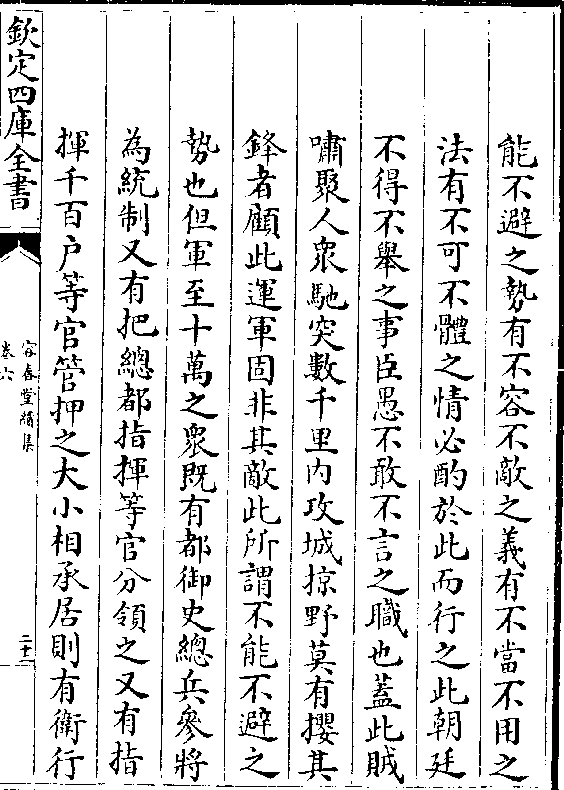 能不避之勢有不容不敵之義有不當不用之
法有不可不體之情必酌於此而行之此朝廷
不得不舉之事臣愚不敢不言之職也蓋此賊
嘯聚人衆馳突數千里内攻城掠野莫有攖其
鋒者顧此運軍固非其敵此所謂不能不避之
勢也但軍至十萬之衆既有都御史總兵參將
為統制又有把總都指揮等官分領之又有指
揮千百户等官管押之大小相承居則有衛行
欽定四庫全書
容春堂續集
卷六
二十二